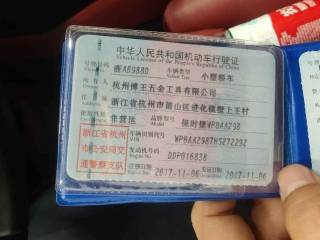 中华人民共和国机动车行驶证
Vehicle License of the People's Republic of China
号牌号码 浙A0988D 车辆类型 小型轿车
Plate No. Vehicle Type
所有人 杭州博王五金工具有限公司
住址 浙江省杭州市萧山区进化镇墅上王村
使用性质 非营运 品牌型号 保时捷WP0AA298
Model
浙江省杭州
市公安局交
通警察支队
车辆识别代号
VIN
发动机号码 DDP016838
Engine No.
注册日期 2017-11-06 发证日期 2017-11-06